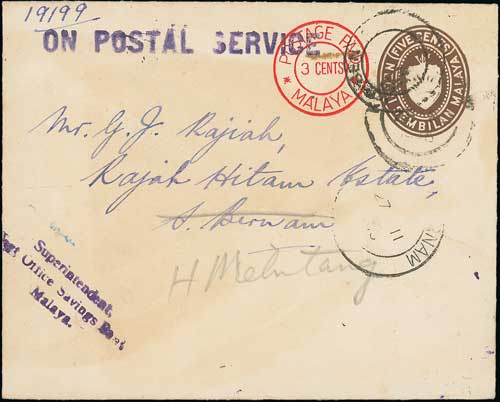 19199
ON POSTAL SERVICE
POSTAGE PAID
3 CENTS
MALAYA
FIVE CENTS
SEMBILAN MALAYA
Mr. G. J. Rajiah,
Rajah Hitam Estate,
S. Bernam
H Melintang
NAM
11
Superintendent,
Post Office Savings Bank
Malaya.